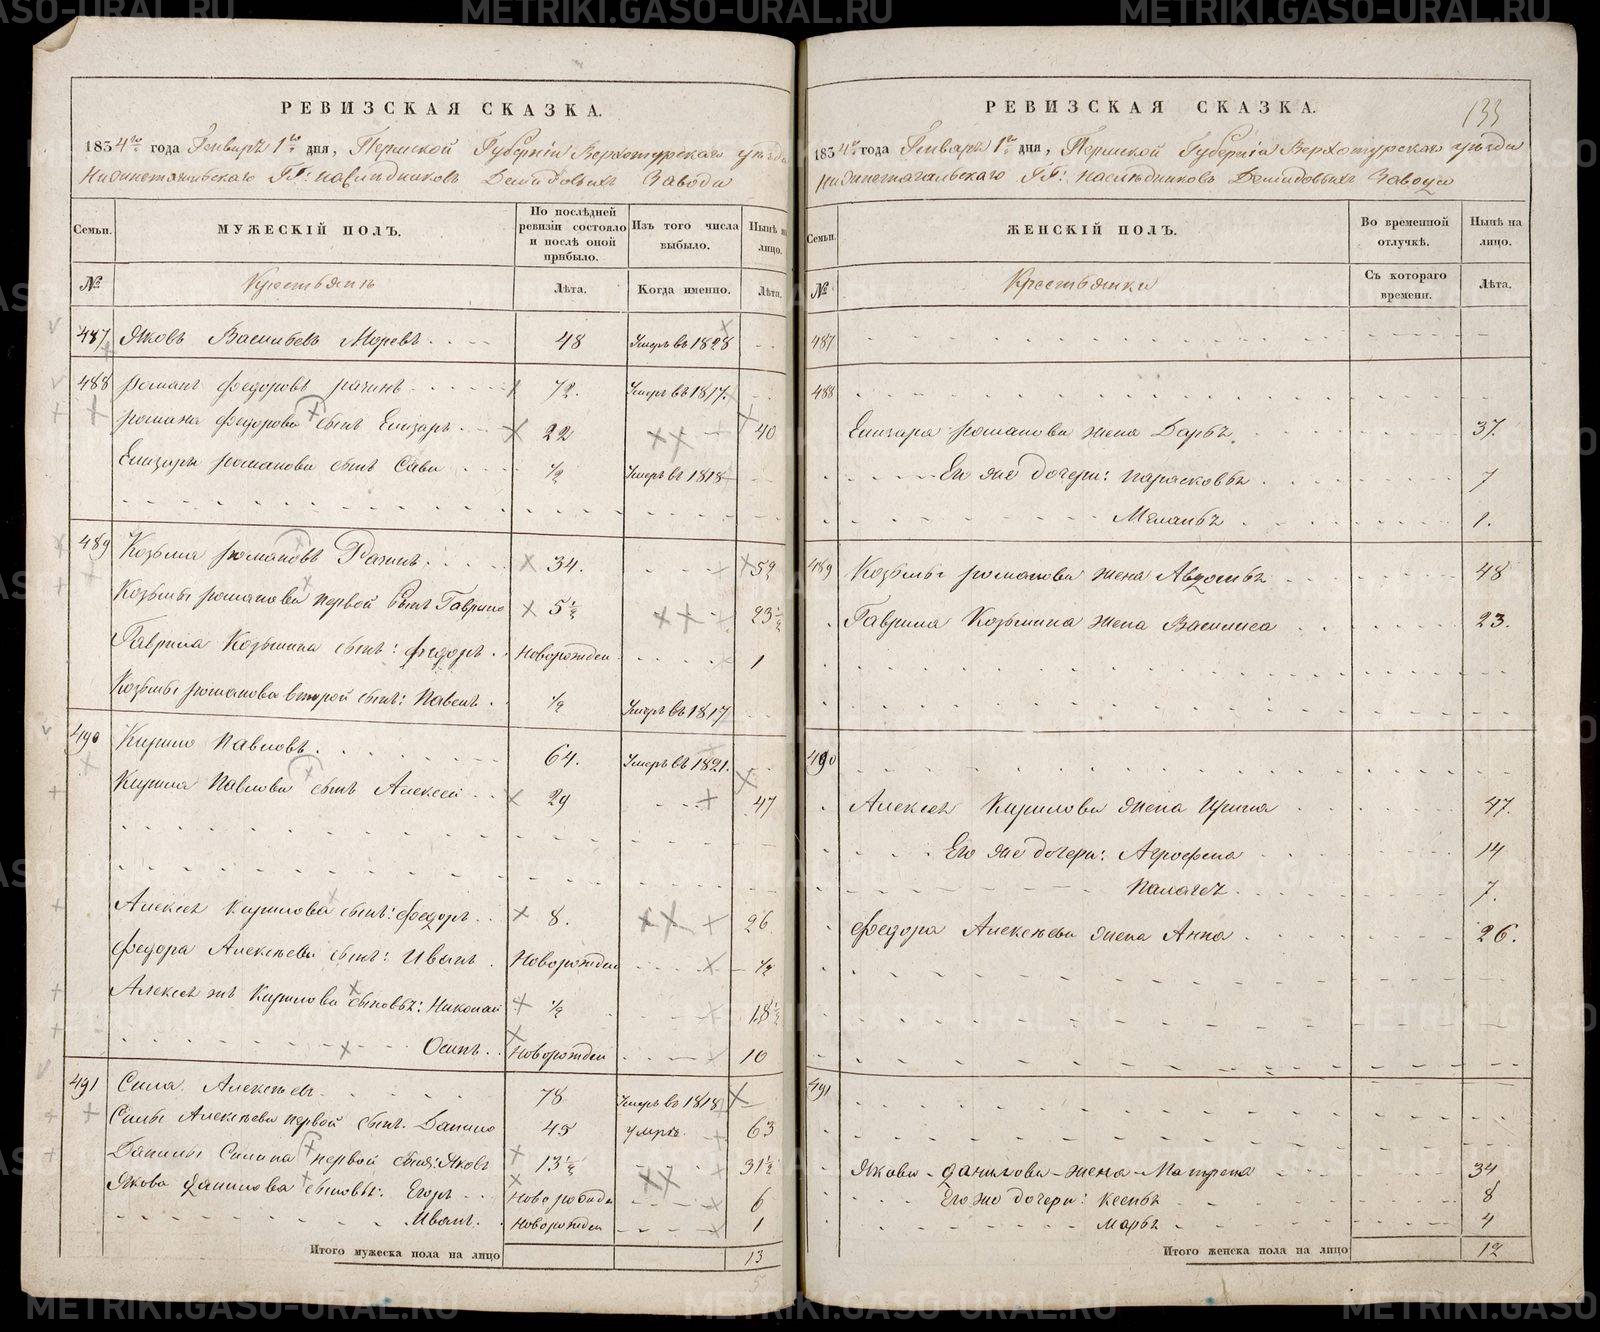 РЕВИЗСКАЯ СКАЗКА.
1834го года Генваря 1го дня, Пермской Губернiи Верхотурскаго уѣзда
Нижнетагильскаго ГГ: наслѣдниковъ Демидовыхъ Завода
Семьи.
МУЖЕСКIЙ ПОЛЪ.
По послѣдней ревизiи состояло и послѣ оной прибыло.
Изъ того числа выбыло.
Нынѣ на лицо.
№
Крестьянъ
Лѣта.
Когда именно.
Лѣта.
487 Яковъ Васильевъ Моревъ 48 Умеръ въ 1828
488 Романъ Федоровъ Рачинъ 72. Умеръ въ 1817.
Романа Федорова сынъ Елизаръ 22 40
Елизара Романова сынъ Сава ½ Умеръ въ 1818
489 Козьма Романовъ Рачинъ. 34. 52
Козьмы Романова первой сынъ Гаврило 5½ 23½
Гаврила Козьмина сынъ: Федоръ Новорожден 1
Козьмы Романова второй сынъ: Павелъ ½ Умеръ въ 1817
490 Кирило Павловъ. 64. Умеръ въ 1821.
Кирила Павлова сынъ Алексей 29 47
Алексея Кирилова сынъ: Федоръ 8. 26
Федора Алексѣева сынъ: Иванъ Новорожден ½
Алексея жъ Кирилова сыновья: Николай ½ 18½
Осипъ Новорожден 10
491 Сила Алексѣевъ 78 Умеръ въ 1818
Силы Алексѣева первой сынъ. Данило 45 умре 63
Данилы Силина первой сынъ: Яковъ 13½ 31½
Якова Данилова сыновья: Егоръ Новорожден 6
Иванъ. Новорожден 1
Итого мужеска пола на лицо 13
133
РЕВИЗСКАЯ СКАЗКА.
1834го года Генваря 1го дня, Пермской Губернiи Верхотурскаго уѣзда
Нижнетагильскаго ГГ: наслѣдниковъ Демидовыхъ Завода
Семьи.
ЖЕНСКIЙ ПОЛЪ.
Во временной отлучкѣ.
Нынѣ на лицо.
№
Крестьянки
Съ котораго времени.
Лѣта.
487
488
Елизара Романова жена Дарья 37.
Его же дочери: Парасковья 7
Меланья 1.
489 Козьмы Романова жена Авдотья 48
Гаврила Козьмина жена Василиса 23.
490
Алексея Кирилова жена Ирина 47.
Его же дочери: Агрофена 14
Палагея 7.
Федора Алексѣева жена Анна 26.
491
Якова Данилова жена Матрена 34
Его же дочери: Ксенья 8
Марья 4
Итого женска пола на лицо 12
METRIKI.GASO-URAL.RU